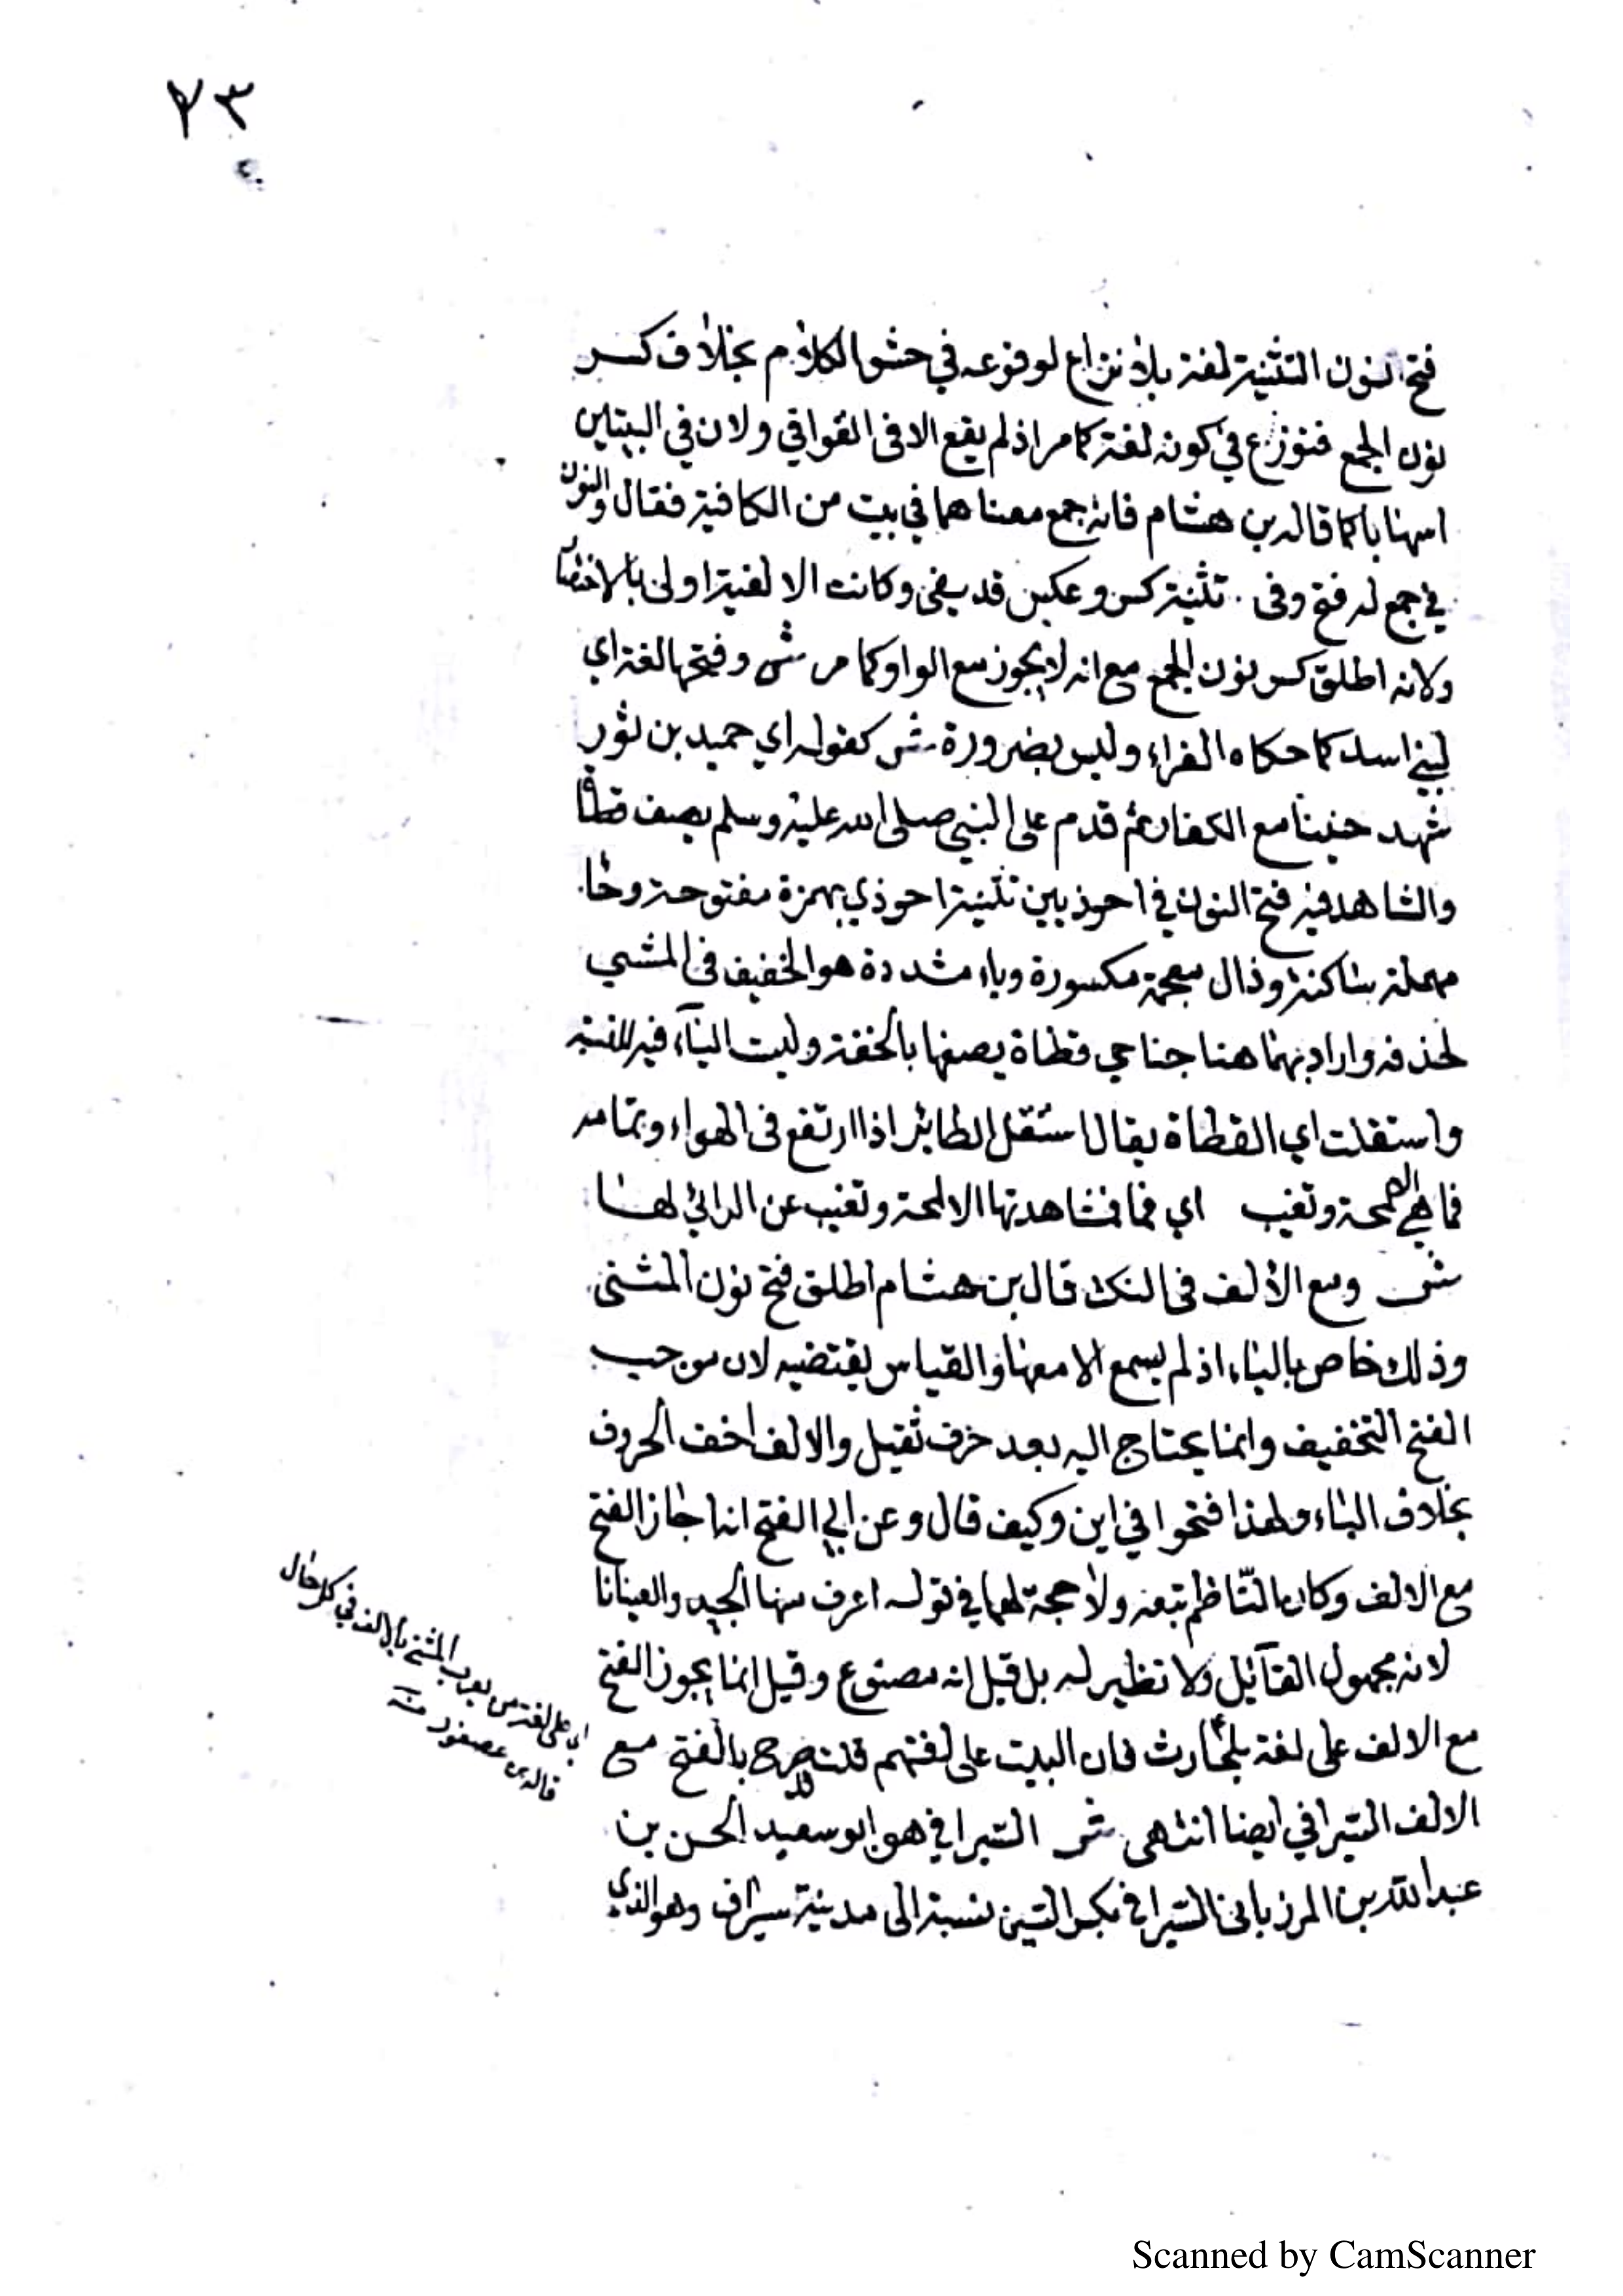 ٧٣
فتح نون التثنية لغة بلا نزاع لوقوعه في حشو الكلام بخلاف كسر
نون الجمع فنوزع في كونه لغة كما مر اذ لم يقع الا في القوافي ولان في البيتين
اسهابا كما قاله بن هشام فانه جمع معناهما في بيت من الكافية فقال والنون
في جمع له فتح وفي . تثنية كسر وعكس قد يفي وكانت الالفية اولى بالاختصا
ولانه اطلق كسر نون الجمع مع انه لا يجوز مع الواو كما مر ش وفتحها لغة اي
لبني اسد كما حكاه الفراء وليس بضرورة ش كقوله اي حميد بن ثور
شهد حنينا مع الكفار ثم قدم على النبي صلى الله عليه وسلم يصف قطاة
والشاهد فيه فتح النون في احوذيين تثنية احوذي بهمزة مفتوحة وحا
مهملة ساكنة وذال معجمة مكسورة وياء مشددة هو الخفيف في المشي
لحذفه واراد بهما هنا جناحي قطاة يصفها بالخفة وليت الياء فيه للنسبة
واستقلت اي القطاة يقال استقل الطائر اذا ارتفع في الهواء وتمامه
فما هي الا لمحة وتغيب اي فما مشاهدتها الا لمحة وتغيب عن الرائي لها
ش ومع الألف في النكت قال بن هشام اطلق فتح نون المثنى
وذلك خاص بالياء اذ لم يسمع الا معها والقياس يقتضيه لان موجب
الفتح التخفيف وانما يحتاج اليه بعد حرف ثقيل والالف اخف الحروف
بخلاف الياء ولهذا فتحوا في اين وكيف قال وعن ابي الفتح انه اجاز الفتح
مع الالف وكان الناظم تبعه ولا حجة لهما في قوله اعرف منها الجيد والعينانا
لانه مجهول القائل ولا نظير له بل قيل انه مصنوع وقيل انما يجوز الفتح
مع الالف على لغة بلحارث فان البيت على لغتهم قلت صرح بالفتح مع
الالف السيرافي ايضا انتهى ش السيرافي هو ابو سعيد الحسن بن
عبد الله بن المرزباني السيرافي بكسر السين نسبة الى مدينة سيراف وهو الذي
اي على لغة من يعرب المثنى بالالف في كل حال
قاله بن عصفور منه
Scanned by CamScanner